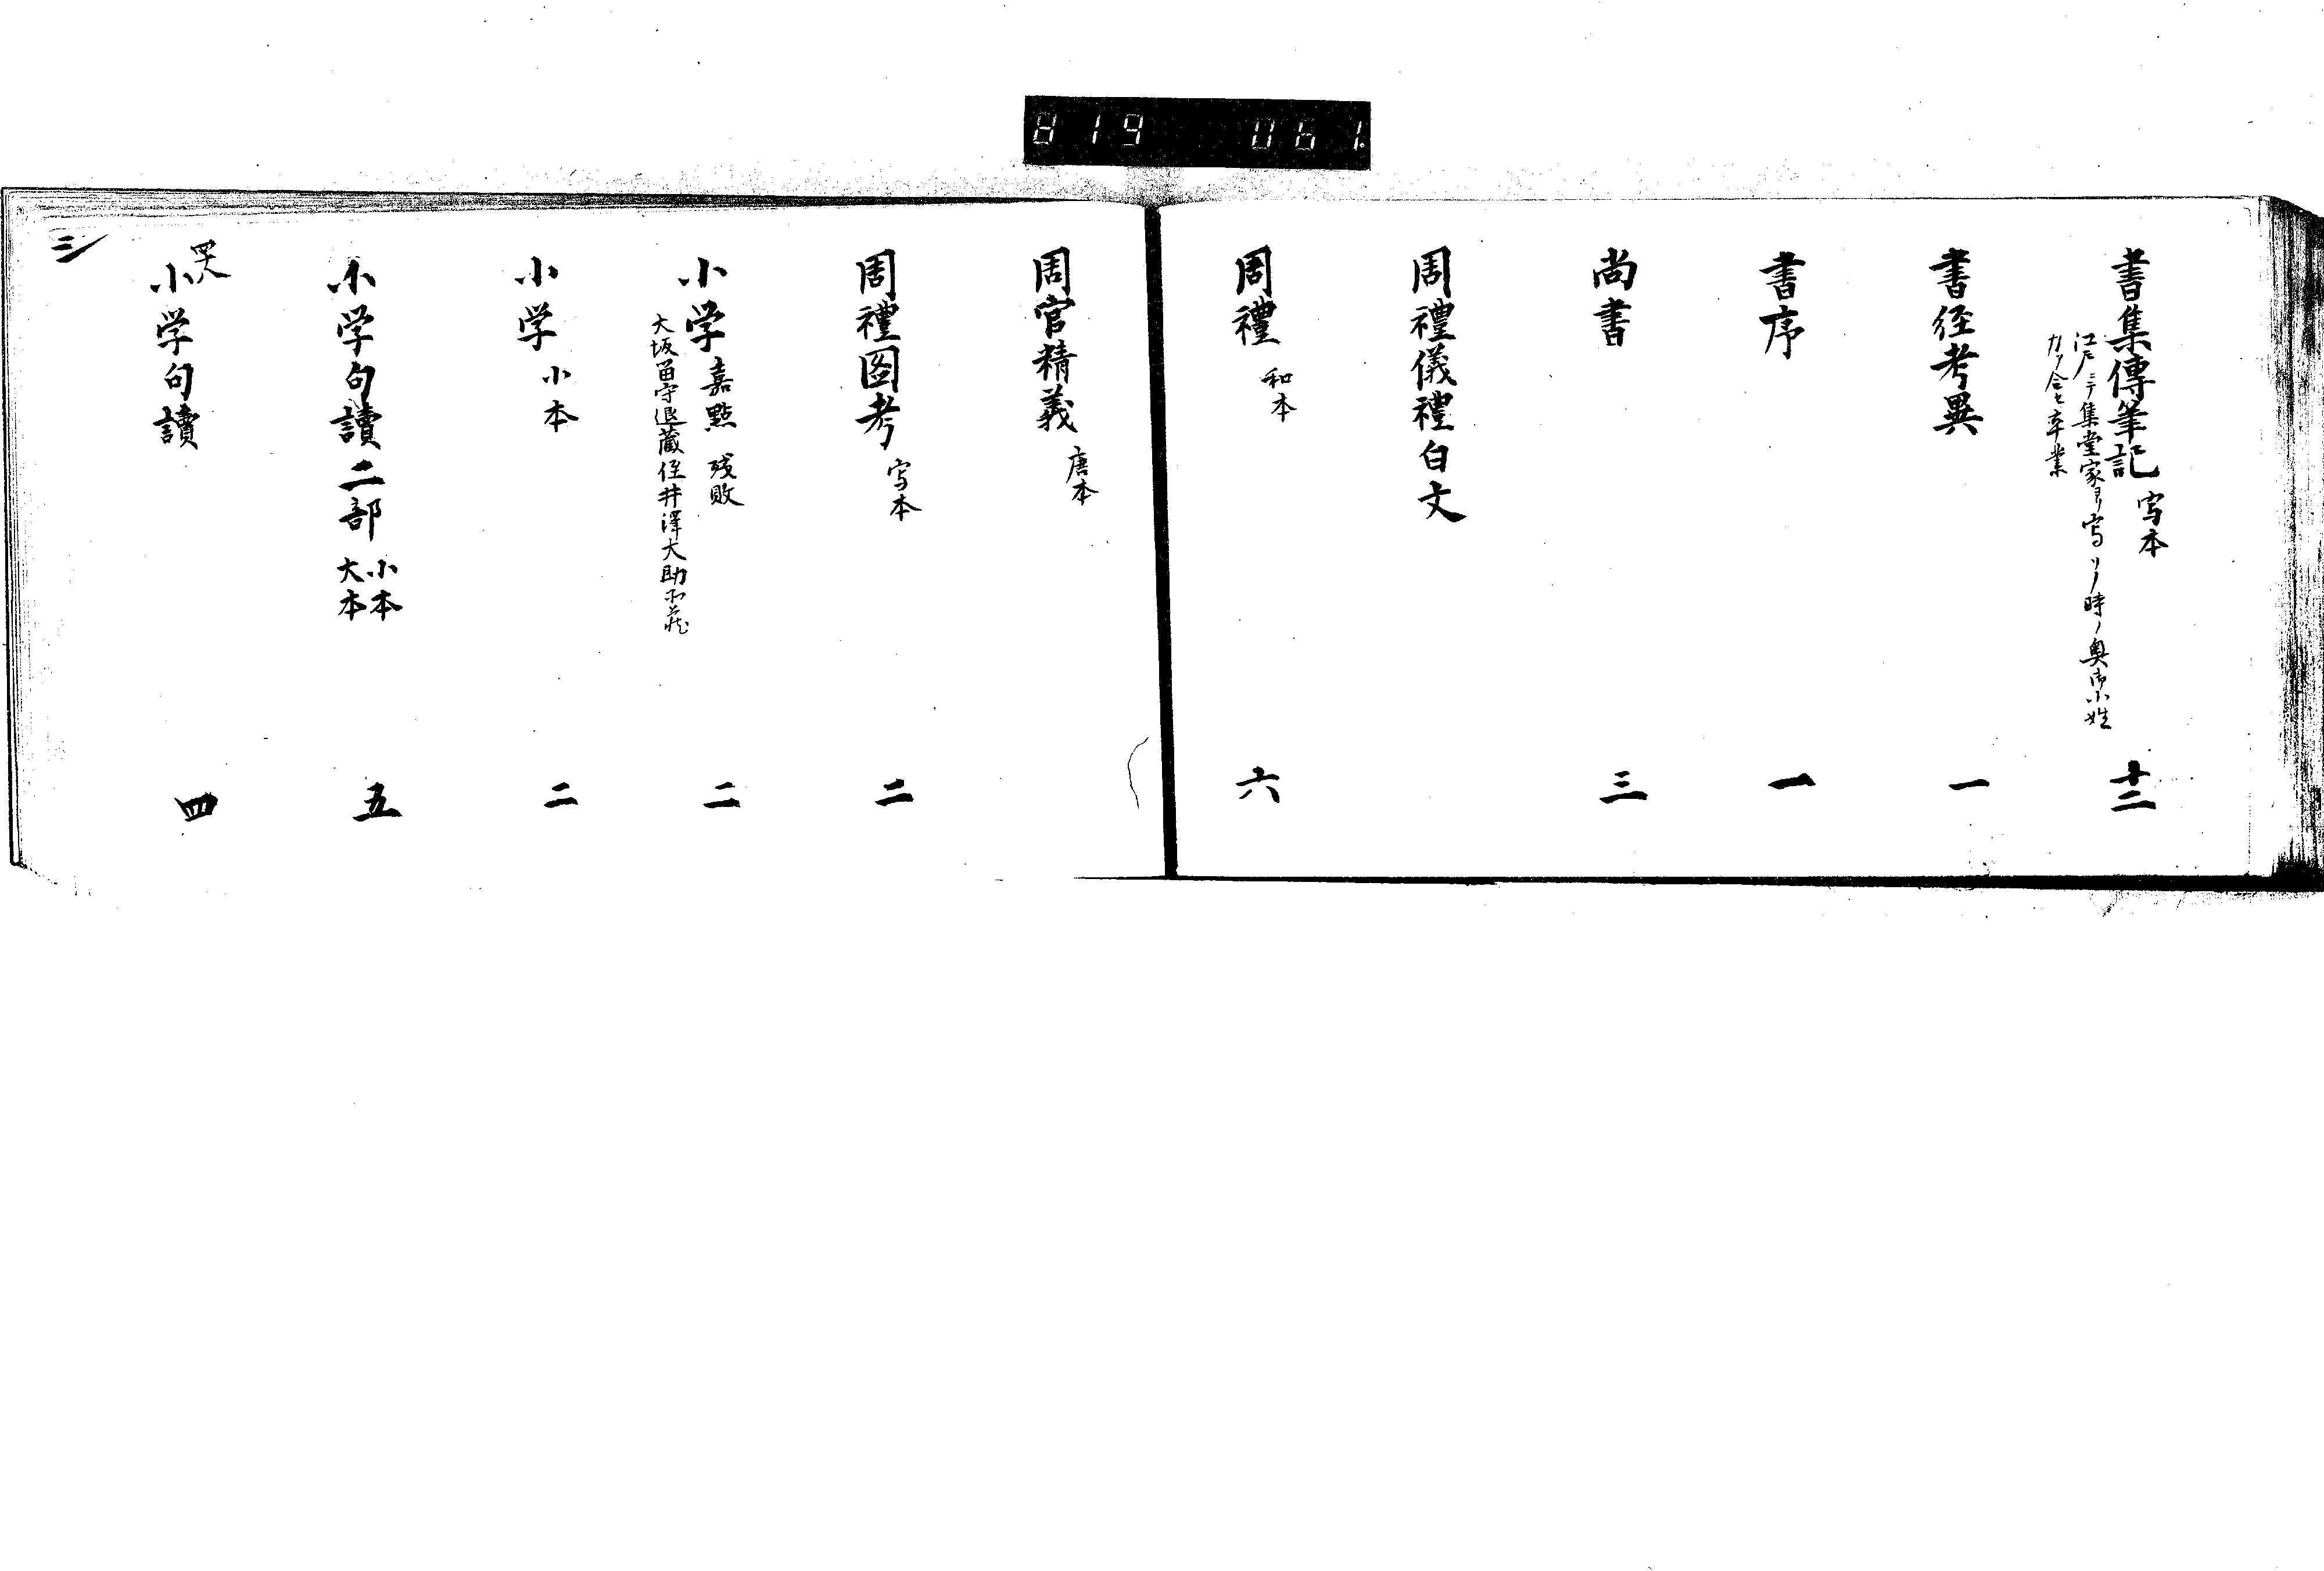 819 061.
書集傳筆記 写本 十二
江戸ニテ集堂家ヨリ写ソノ時ノ奥御小姓
力ヲ合セ卒業
書径考異 一
書序 一
尚書 三
周禮儀禮白文
周禮 和本 六
周官精義 唐本
周禮図考 写本 二
小学 嘉點 残敗 二
大坂留守退蔵侄井澤大助所蔵
小学 小本 二
小学句讀二部 小本 大本 五
小学句讀 四
三